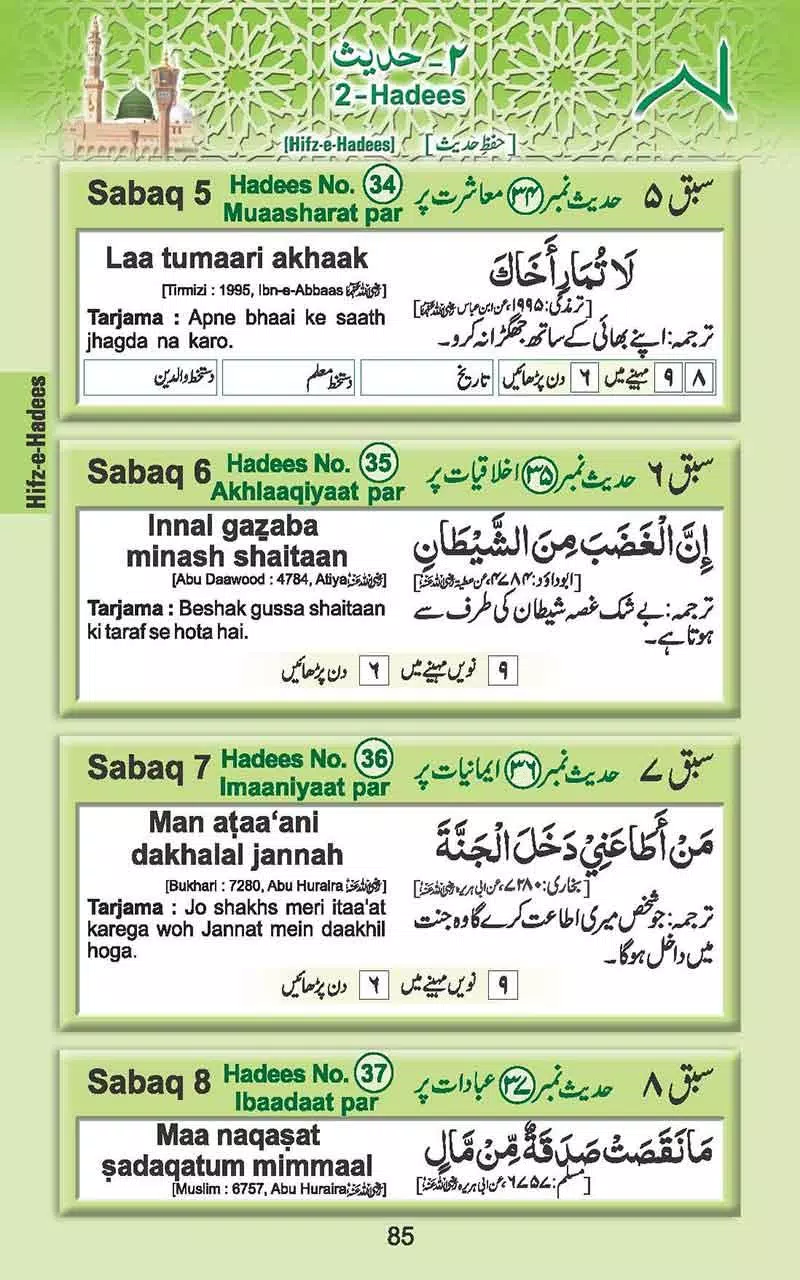 ۲- حدیث
2-Hadees
[Hifz-e-Hadees] [حفظِ حدیث]
Hifz-e-Hadees
Sabaq 5 Hadees No. 34 حدیث نمبر ۳۴ معاشرت پر سبق ۵
Muaasharat par
Laa tumaari akhaak لَا تُمَارِ أَخَاكَ
[Tirmizi : 1995, Ibn-e-Abbaas رضی اللہ عنہما] [ترمذی: ۱۹۹۵، عن ابن عباس رضی اللہ عنہما]
Tarjama : Apne bhaai ke saath ترجمہ: اپنے بھائی کے ساتھ جھگڑا نہ کرو۔
jhagda na karo.
۸ ۹ مہینے میں ۶ دن پڑھائیں تاریخ دستخط معلم دستخط والدین
Sabaq 6 Hadees No. 35 حدیث نمبر ۳۵ اخلاقیات پر سبق ۶
Akhlaaqiyaat par
Innal gaẕaba إِنَّ الْغَضَبَ مِنَ الشَّيْطَانِ
minash shaitaan
[Abu Daawood : 4784, Atiya رضی اللہ عنہ] [ابوداؤد: ۴۷۸۴، عن عطیہ رضی اللہ عنہ]
Tarjama : Beshak gussa shaitaan ترجمہ: بے شک غصہ شیطان کی طرف سے
ki taraf se hota hai. ہوتا ہے۔
۹ نویں مہینے میں ۶ دن پڑھائیں
Sabaq 7 Hadees No. 36 حدیث نمبر ۳۶ ایمانیات پر سبق ۷
Imaaniyaat par
Man aṭaa‘ani مَنْ أَطَاعَنِيْ دَخَلَ الْجَنَّةَ
dakhalal jannah
[Bukhari : 7280, Abu Huraira رضی اللہ عنہ] [بخاری: ۷۲۸۰، عن ابی ہریرہ رضی اللہ عنہ]
Tarjama : Jo shakhs meri itaa'at ترجمہ: جو شخص میری اطاعت کرے گا وہ جنت
karega woh Jannat mein daakhil میں داخل ہوگا۔
hoga.
۹ نویں مہینے میں ۶ دن پڑھائیں
Sabaq 8 Hadees No. 37 حدیث نمبر ۳۷ عبادات پر سبق ۸
Ibaadaat par
Maa naqaṣat مَا نَقَصَتْ صَدَقَةٌ مِّنْ مَّالٍ
ṣadaqatum mimmaal
[Muslim : 6757, Abu Huraira رضی اللہ عنہ] [مسلم: ۶۷۵۷، عن ابی ہریرہ رضی اللہ عنہ]
85